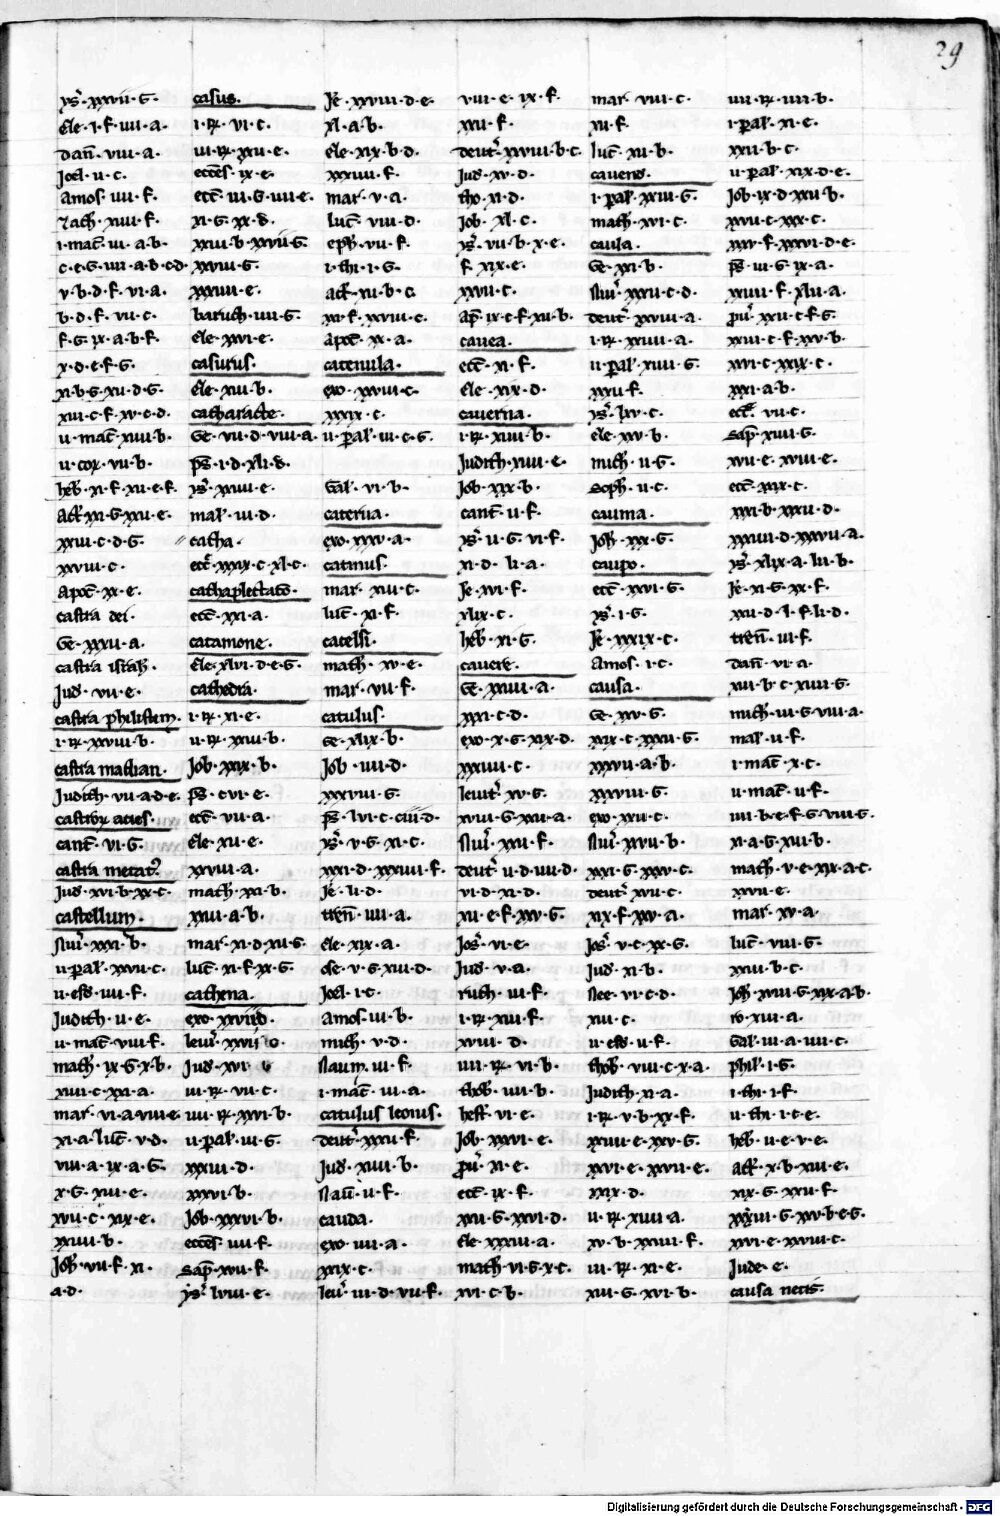 29
ys̄ · xxvii · G ·
Eze · i · f · iiii · a ·
dañ · viii · a ·
Joel · ii · c ·
Amos · iiii · f ·
Zach · xiiii · f ·
i · mac̄ · iii · a · b ·
c · e · G · iiii · a · b · c · d ·
v · b · d · f · vi · a ·
b · d · f · vii · c ·
f · G · ix · a · b · f ·
x · d · e · f · G ·
xi · b · G · xii · d · G ·
xiii · c · f · xv · c · d ·
ii · mac̄ · xiiii · b ·
ii · cor · vii · b ·
heb̄ · xi · f · xii · e · f ·
Act̄ · xxi · G · xxii · e ·
xxiii · c · d · G ·
xxviii · c ·
Apoc̄ · xx · e ·
castra dei ·
Ge · xxxii · a ·
castra israh̄ ·
Jud · vii · e ·
castra philistim ·
i · R̄ · xxviii · b ·
castra mathan ·
Judith · vii · a · d · e ·
castrorum acies ·
cant̄ · vi · G ·
castra metatur
Jud · xvi · b · xx · c ·
castellum ·
Nūi · xxxi · b ·
ii · pal̄ · xxvii · c ·
ii · esd · iiii · f ·
Judith · ii · e ·
ii · mac̄ · viii · f ·
math · ix · G · x · b ·
xiiii · c · xxi · a ·
mar · vi · a · viii · e
xi · a · luc̄ · v · d ·
viii · a · ix · a · G ·
x · G · xiii · e ·
xvii · c · xix · e ·
xxiiii · b ·
Joh̄ · vii · f · xi ·
a · d ·
casus ·
i · R̄ · vi · c ·
iii · R̄ · xxii · e ·
eccēs · ix · e ·
ecc̄ · iii · G · iiii · e ·
xi · G · xx · d ·
xxiii · b · xxvii · G ·
xxviii · G ·
xxxiii · e ·
baruch · iiii · G ·
Eze · xxvi · e ·
casurus ·
Eze · xiii · b ·
catharacte ·
Ge · vii · d · viii · a ·
ps̄ · i · d · xli · d ·
ys̄ · xxiiii · e ·
mal · iii · d ·
catha ·
ecc̄ · xxix · c · xl · c ·
cathaplectato ·
ecc̄ · xxi · a ·
catamone ·
Eze · xlvi · d · e · G ·
cathedra ·
i · R̄ · xi · e ·
ii · R̄ · xxiii · b ·
Job · xxix · b ·
ps̄ · cvi · e ·
ecc̄ · vii · a ·
Eze · xii · e ·
xxviii · a ·
math · xxi · b ·
xxiii · a · b ·
mar · xi · d · xii · G ·
luc̄ · xi · f · xx · G ·
cathena ·
exo · xxviii d ·
leui · xxvii
Jud · xvi
iii · R̄ · vii · c ·
iiii · R̄ · xxvi · b ·
ii · pal̄ · iii · G ·
xxxiii · d ·
xxxvi · b ·
Job · xxxvi · b ·
eccēs · iiii · f ·
sap̄ · xvii · f ·
ys̄ · lviii · e ·
Je · xxviii · d · e ·
xl · a · b ·
eze · xix · b · d ·
xxxiiii · f ·
mar · v · a ·
luc̄ · viii · d ·
eph̄ · vii · f ·
i · thi · i · G ·
act̄ · xii · b · c ·
xv · f · xxviii · c ·
apoc̄ · xx · a ·
catenula ·
exo · xxviii · c ·
xxxix · c ·
ii · pal̄ · iii · c · G ·
Gal̄ · vi · b ·
caterua ·
exo · xxxv · a ·
catinus ·
mar · xiiii · c ·
luc̄ · xi · f ·
catelli ·
math · xv · e ·
mar · vii · f ·
catulus ·
Ge · xlix · b ·
Job · iiii · d ·
xxxviii · G ·
ps̄ · lvi · c · ciii · d ·
ys̄ · v · G · xi · c ·
xxxi · d · xxxiiii · f ·
Je · li · d ·
tren̄ · iiii · a ·
Eze · xix · a ·
ose · v · G · xiii · d ·
Joel · i · c ·
Amos · iii · b ·
mich · v · d ·
Naum · iii · f ·
i · mac̄ · iii · a ·
catulus leonis ·
deut̄ · xxxii · f ·
Jud · xiiii · b ·
Naū · ii · f ·
cauda ·
exo · iiii · a ·
xxix · c ·
leui · iii · d · vii · f ·
viii · e · ix · f ·
xxii · f ·
deut̄ · xxviii · b · c ·
Jud · xv · d ·
tho · xi · d ·
Job · xl · c ·
ys̄ · vii · b · x · e ·
f · xix · e ·
xxvii · c ·
ap̄ · ix · c · f · xii · b ·
cauea ·
ecc̄ · xi · f ·
Eze · xix · d ·
cauerna ·
i · R̄ · xiiii · b ·
Judith · xiiii · e ·
Job · xxx · b ·
cant̄ · ii · f ·
ys̄ · ii · G · vi · f ·
xi · d · li · a ·
Je · xvi · f ·
xlix · c ·
heb̄ · xi · G ·
cauere ·
Ge · xxiiii · a ·
xxxi · c · d ·
exo · x · G · xix · d ·
xxxiiii · c ·
leuit̄ · xv · G ·
xviii · G · xxii · a ·
Nūi · xxii · f ·
deut̄ · ii · d · iiii · d ·
vi · d · xi · d ·
xii · e · f · xv · G ·
Jos̄ · vi · e ·
Jud · v · a ·
ruth · iii · f ·
i · R̄ · xiii · f ·
xviii · d ·
iiii · R̄ · vi · b ·
thob · iiii · b ·
hest · vi · e ·
Job · xxxvi · e ·
pū · xi · e ·
ecc̄ · ix · f ·
xxii · G · xxvi · d ·
Eze · xxxiii · a ·
math · vi · G · x · c ·
xvi · c · b ·
mar · viii · c ·
xii · f ·
luc̄ · xii · b ·
cauens ·
i · pal̄ · xxiii · G ·
math · xvi · c ·
caula ·
Ge · xxi · b ·
Nūi · xxxii · c · d ·
deut̄ · xxviii · a ·
i · R̄ · xxiiii · a ·
ii · pal̄ · xiiii · G ·
xxxii · f ·
ys̄ · lxv · c ·
Eze · xxv · b ·
mich · ii · G ·
soph · ii · c ·
cauma ·
Job̄ · xxx · G ·
caupo ·
ecc̄ · xxvi · G ·
ys̄ · i · G ·
Je · xxxix · c ·
Amos · i · c ·
causa ·
Ge · xxv · G ·
xxix · c · xxxii · G ·
xxxvii · a · b ·
xxxviii · G ·
exo · xxii · c ·
Nūi · xxvii · b ·
xxxi · G · xxxv · c ·
deut̄ · xvii · c ·
xix · f · xxv · a ·
Jos̄ · v · c · xx · G ·
Jud · xi · b ·
Nee · vi · c · d ·
xiii · c ·
ii · esd · ii · f ·
thob · viii · c · x · a ·
Judith · xi · a ·
i · R̄ · v · b · xx · f ·
xxiiii · e · xxv · G ·
xxvi · e · xxvii · e ·
xxix · d ·
ii · R̄ · xiiii · a ·
xv · b · xxiiii · f ·
iii · R̄ · xi · e ·
xiii · G · xvi · b ·
iiii · R̄ · iiii · b ·
i · pal̄ · xi · e ·
xxii · b · c ·
ii · pal̄ · xix · d · e ·
Job · ix · d · xxii · b ·
xxvii · c · xxx · c ·
xxxv · f · xxxvi · d · e ·
ps̄ · iii · G · ix · a ·
xxiiii · f · xlii · a ·
pū · xxii · c · f · G ·
xxiii · c · f · xxv · b ·
xxvi · c · xxix · c ·
xxxi · a · b ·
ecc̄ · vii · c ·
sap̄ · xiiii · G ·
xvii · e · xviii · e ·
ecc̄ · xxix · c ·
xxxi · b · xxxii · d ·
xxxiiii · d · xxxvii · a ·
ys̄ · xlix · a · liii · b ·
Je · xi · G · xx · f ·
xxii · d · l · f · li · d ·
tren̄ · iii · f ·
dan̄ · vi · a ·
xiii · b · c · xiiii · G ·
mich · iii · G · viii · a ·
mal · ii · f ·
i · mac̄ · x · c ·
ii · mac̄ · ii · f ·
iiii · b · e · f · G · viii · G ·
xi · a · G · xii · b ·
math · v · e · xix · a · c ·
xxvii · e ·
mar · xv · a ·
luc̄ · viii · G ·
xxiii · b · c ·
Joh̄ · xviii · G · xix · a · b ·
ro · xiii · a ·
Gal · iii · a · iiii · c ·
phil · i · G ·
i · thi · i · f ·
ii · thi · i · c · e ·
heb · ii · e · v · e ·
act̄ · x · b · xiii · e ·
xix · G · xxii · f ·
xxiii · G · xxv · b · e · G ·
xxvi · e · xxviii · c ·
Jude · e ·
causa necis ·
Digitalisierung gefördert durch die Deutsche Forschungsgemeinschaft · DFG